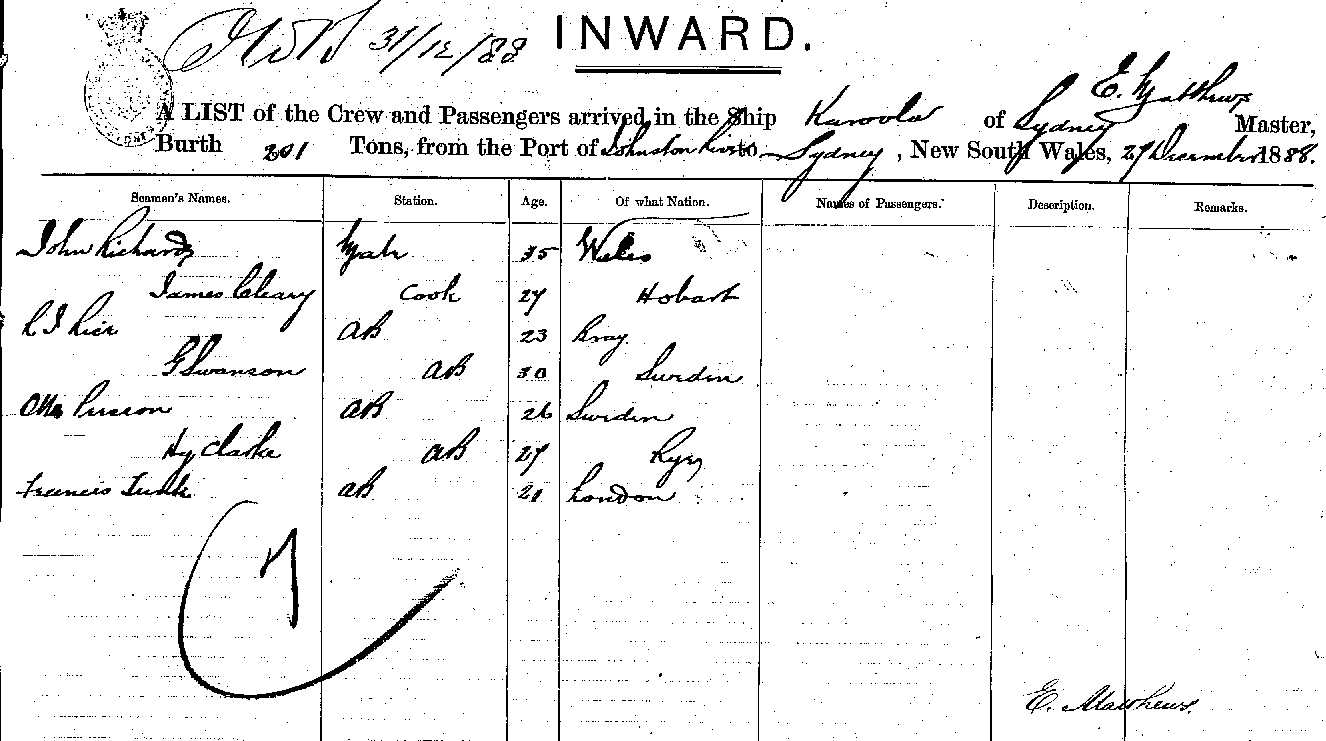 31/12/88 INWARD.
E. Matthews
A LIST of the Crew and Passengers arrived in the Ship Karoola of Sydney Master,
Burth 201 Tons, from the Port of Johnston River to Sydney, New South Wales, 27 December 1888.
Seamen's Names. Station. Age. Of what Nation. Names of Passengers. Description. Remarks.
John Richards Mate 35 Wales
James Cleary Cook 27 Hobart
AB 23
G Swanson AB 30 Sweden
AB 26 Sweden
Hy Clarke AB 27
Francis AB 21 London
7
E. Matthews.